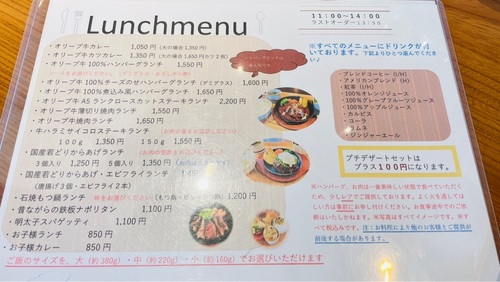 Lunchmenu
11:00～14:00
ラストオーダー13:30
・オリーブ牛カレー 1,050円（大の場合1,350円）
・オリーブ牛カツカレー 1,350円（大の場合1,650円カツ2枚）
・オリーブ牛100%ハンバーグランチ 1,550円
・オリーブ牛100%チーズのせハンバーグランチ（デミグラス） 1,600円
・オリーブ牛100%煮込み風ハンバーグランチ 1,650円
・オリーブ牛A5ランクロースカットステーキランチ 2,200円
・オリーブ牛薄切り焼肉ランチ 1,550円
・オリーブ牛焼肉ランチ 1,650円
・牛ハラミサイコロステーキランチ
100g 1,350円 150g 1,550円
・国産若どりからあげランチ
3個入り 1,250円 5個入り 1,350円
・国産若どりからあげ、エビフライランチ
（唐揚げ3個・エビフライ2本）
・石焼もつ鍋ランチ 1,200円
・昔ながらの鉄板ナポリタン 1,100円
・明太子スパゲッティ 1,100円
・お子様ランチ 850円
・お子様カレー 850円
ご飯のサイズを、大（約380g）・中（約220g）・小（約160g）でお選びいただけます
※すべてのメニューにドリンクが付いております。下記よりひとつ選んでください♪
ブレンドコーヒー（I/H）
アメリカンブレンド
紅茶（I/H）
100%オレンジジュース
100%グレープフルーツジュース
100%アップルジュース
カルピス
コーラ
ラムネ
ジンジャーエール
プチデザートセットは
プラス100円になります。
※ハンバーグ、お肉は一番美味しい状態で食べていただく